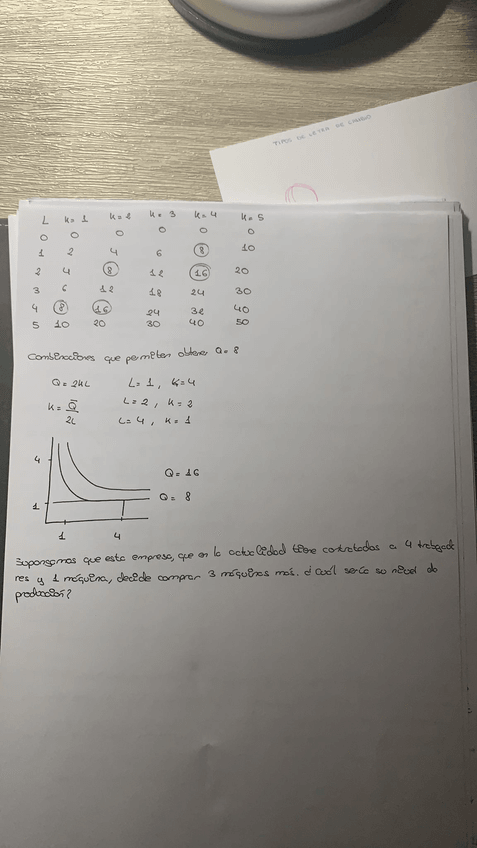 TIPOS DE LETRA DE CAMBIO
L K=1 K=2 K=3 K=4 K=5
0 0 0 0 0 0
1 2 4 6 8 10
2 4 8 12 16 20
3 6 12 18 24 30
4 8 16 24 32 40
5 10 20 30 40 50
Combinaciones que permiten obtener Q=8
Q=2KL L=1, K=4
K=Q̅/2L L=2, K=2
L=4, K=1
4
Q=16
1
Q=8
1 4
Supongamos que esta empresa, que en la actualidad tiene contratados a 4 trabajado
res y 1 máquina, decide comprar 3 máquinas más. ¿Cuál sería su nivel de
producción?